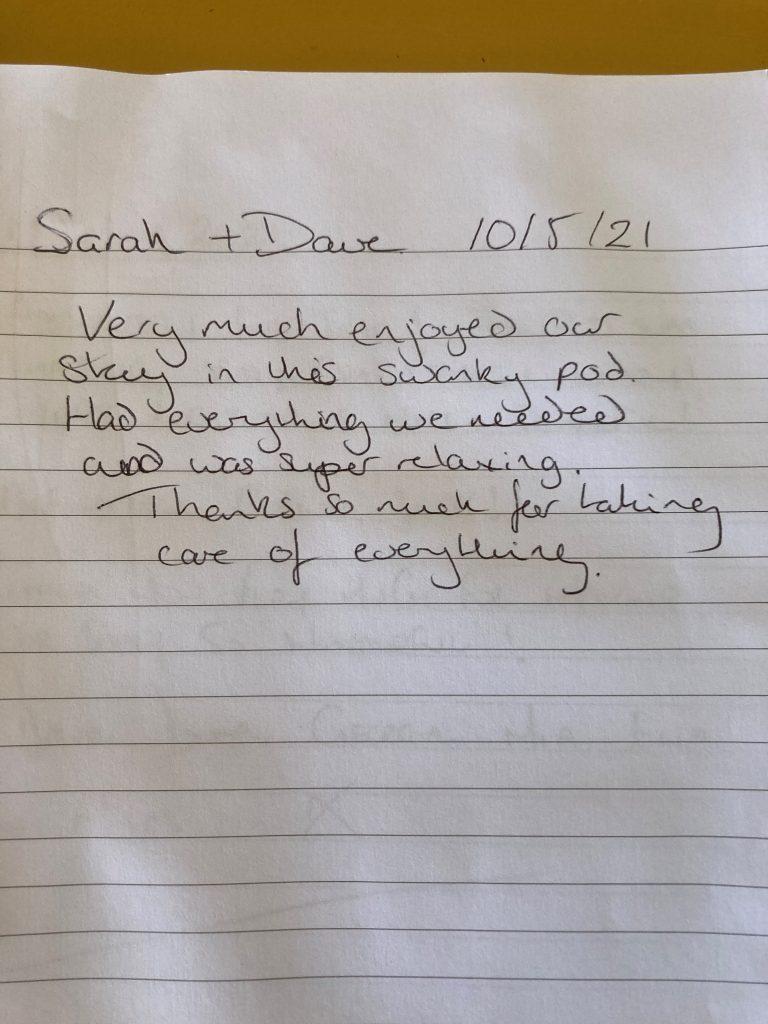 Sarah + Dave 10/5/21
Very much enjoyed our
stay in this swanky pod.
Had everything we needed
and was super relaxing.
Thanks so much for taking
care of everything.